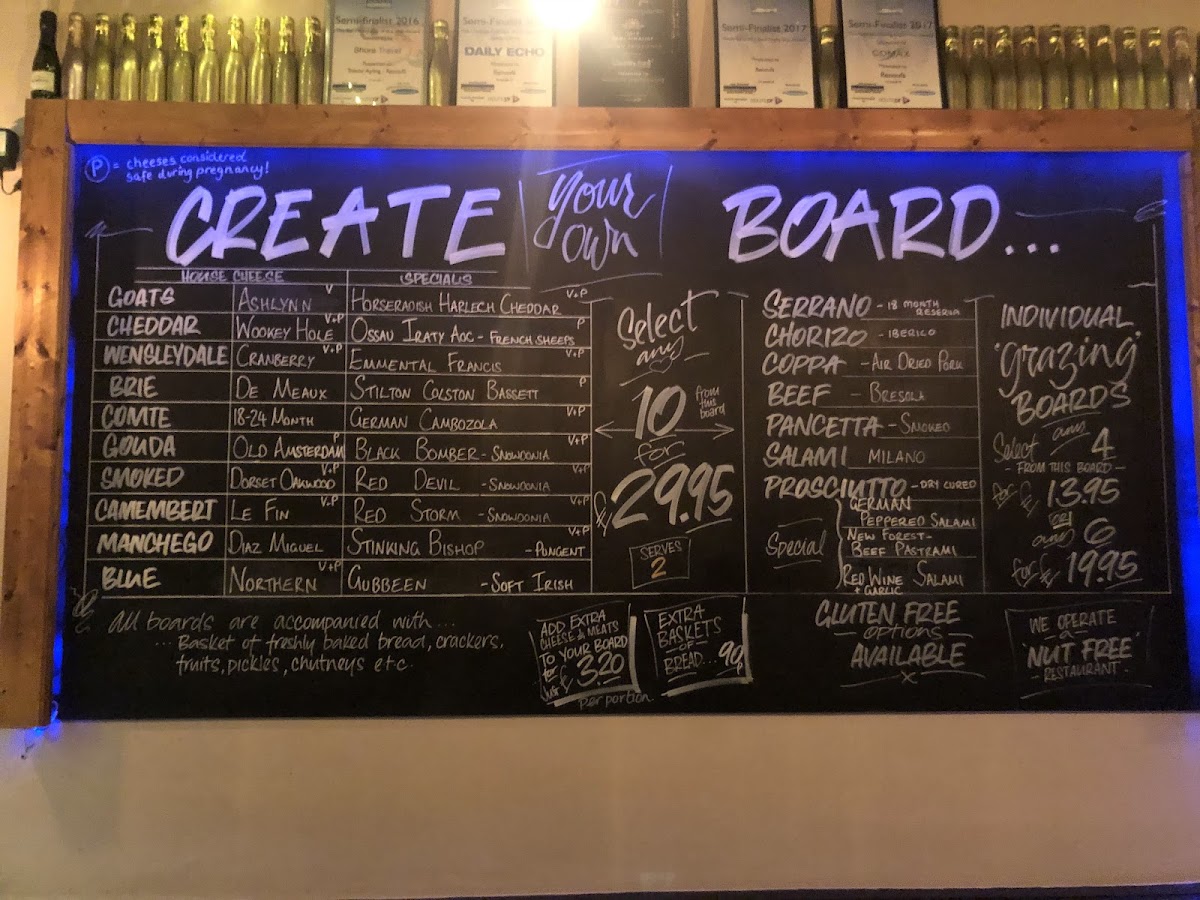 Semi-Finalist 2016
Shore Travel
DAILY ECHO
Semi-Finalist 2017
Semi-Finalist 2017
COMAX
P = cheeses considered
safe during pregnancy!
CREATE your own BOARD...
HOUSE CHEESE SPECIALS
GOATS ASHLYNN V HORSERADISH HARLECH CHEDDAR V+P
CHEDDAR WOOKEY HOLE V+P OSSAU IRATY AOC - FRENCH SHEEPS P
WENSLEYDALE CRANBERRY V+P EMMENTAL FRANCIS V+P
BRIE DE MEAUX STILTON COLSTON BASSETT P
COMTE 18-24 MONTH GERMAN CAMBOZOLA V+P
GOUDA OLD AMSTERDAM P BLACK BOMBER - SNOWDONIA V+P
SMOKED DORSET OAKWOOD V+P RED DEVIL - SNOWDONIA V+P
CAMEMBERT LE FIN V+P RED STORM - SNOWDONIA V+P
MANCHEGO DIAZ MIGUEL STINKING BISHOP - PUNGENT V+P
BLUE NORTHERN V+P GUBBEEN - SOFT IRISH
Select
any
10 from this board
for
£29.95
SERVES
2
SERRANO - 18 MONTH RESERVA
CHORIZO - IBERICO
COPPA - AIR DRIED PORK
BEEF - BRESOLA
PANCETTA - SMOKED
SALAMI MILANO
PROSCIUTTO - DRY CURED
Special
GERMAN
PEPPERED SALAMI
NEW FOREST-
BEEF PASTRAMI
RED WINE SALAMI
+ GARLIC
INDIVIDUAL
'grazing'
BOARDS
Select any 4
- FROM THIS BOARD -
for £13.95
OR
any 6
for £19.95
All boards are accompanied with...
... Basket of freshly baked bread, crackers,
fruits, pickles, chutneys etc.
ADD EXTRA
CHEESE & MEATS
TO YOUR BOARD
for just £3.20
per portion
EXTRA
BASKETS
OF
BREAD... 90p
GLUTEN FREE
- options -
AVAILABLE
x
WE OPERATE
a
'NUT FREE'
- RESTAURANT -